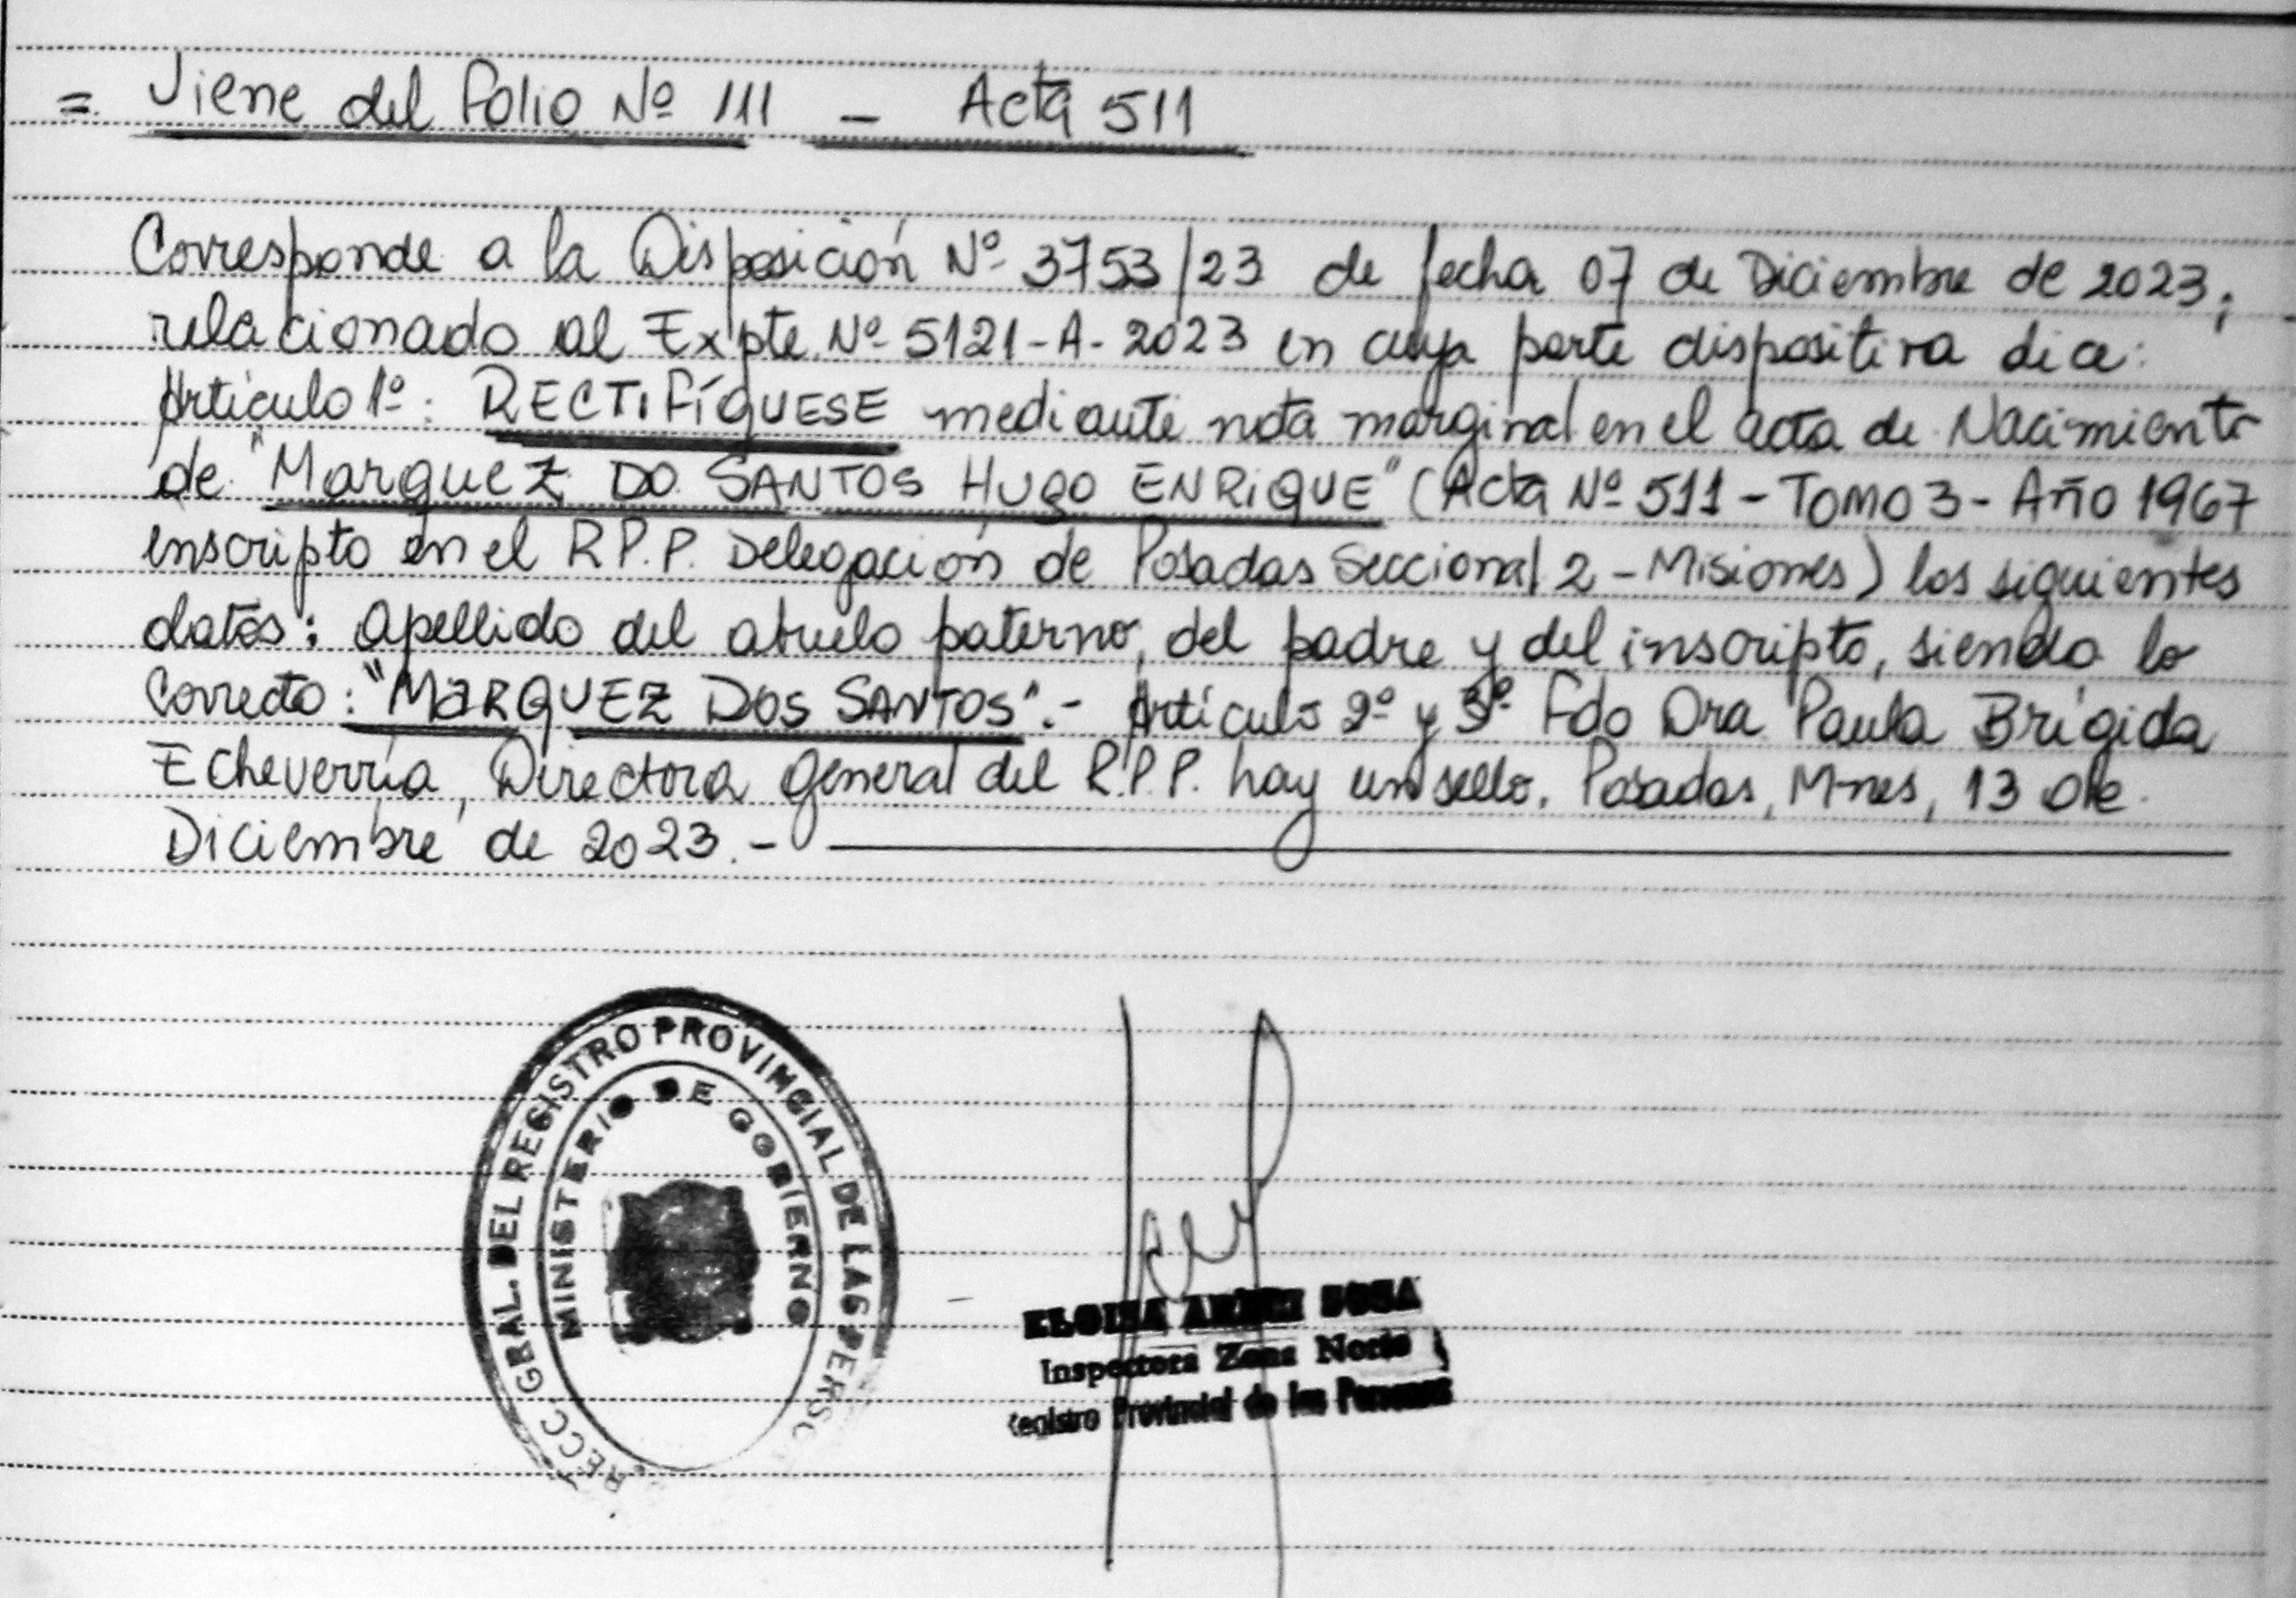 = Viene del Folio Nº 111 - Acta 511
Corresponde a la Disposición Nº 3753/23 de fecha 07 de Diciembre de 2023;
relacionado al Expte Nº 5121-A-2023 en cuya parte dispositiva dice:
Artículo 1º: RECTIFÍQUESE mediante nota marginal en el acta de Nacimiento
de "Marquez DO SANTOS HUGO ENRIQUE" (Acta Nº 511 - TOMO 3 - Año 1967
inscripto en el R.P.P. Delegación de Posadas Seccional 2 - Misiones) los siguientes
datos: apellido del abuelo paterno, del padre y del inscripto, siendo lo
Correcto: "MARQUEZ DOS SANTOS".- Artículo 2º y 3º Fdo Dra Paula Brígida
Echeverría, Directora General del R.P.P. hay un sello. Posadas, M-nes, 13 de
Diciembre de 2023.-
RECC. GRAL. DEL REGISTRO PROVINCIAL DE LAS PERSO
MINISTERIO DE GOBIERNO
ELOISA SOSA
Inspectora Zona Norte
Registro Provincial de las Personas